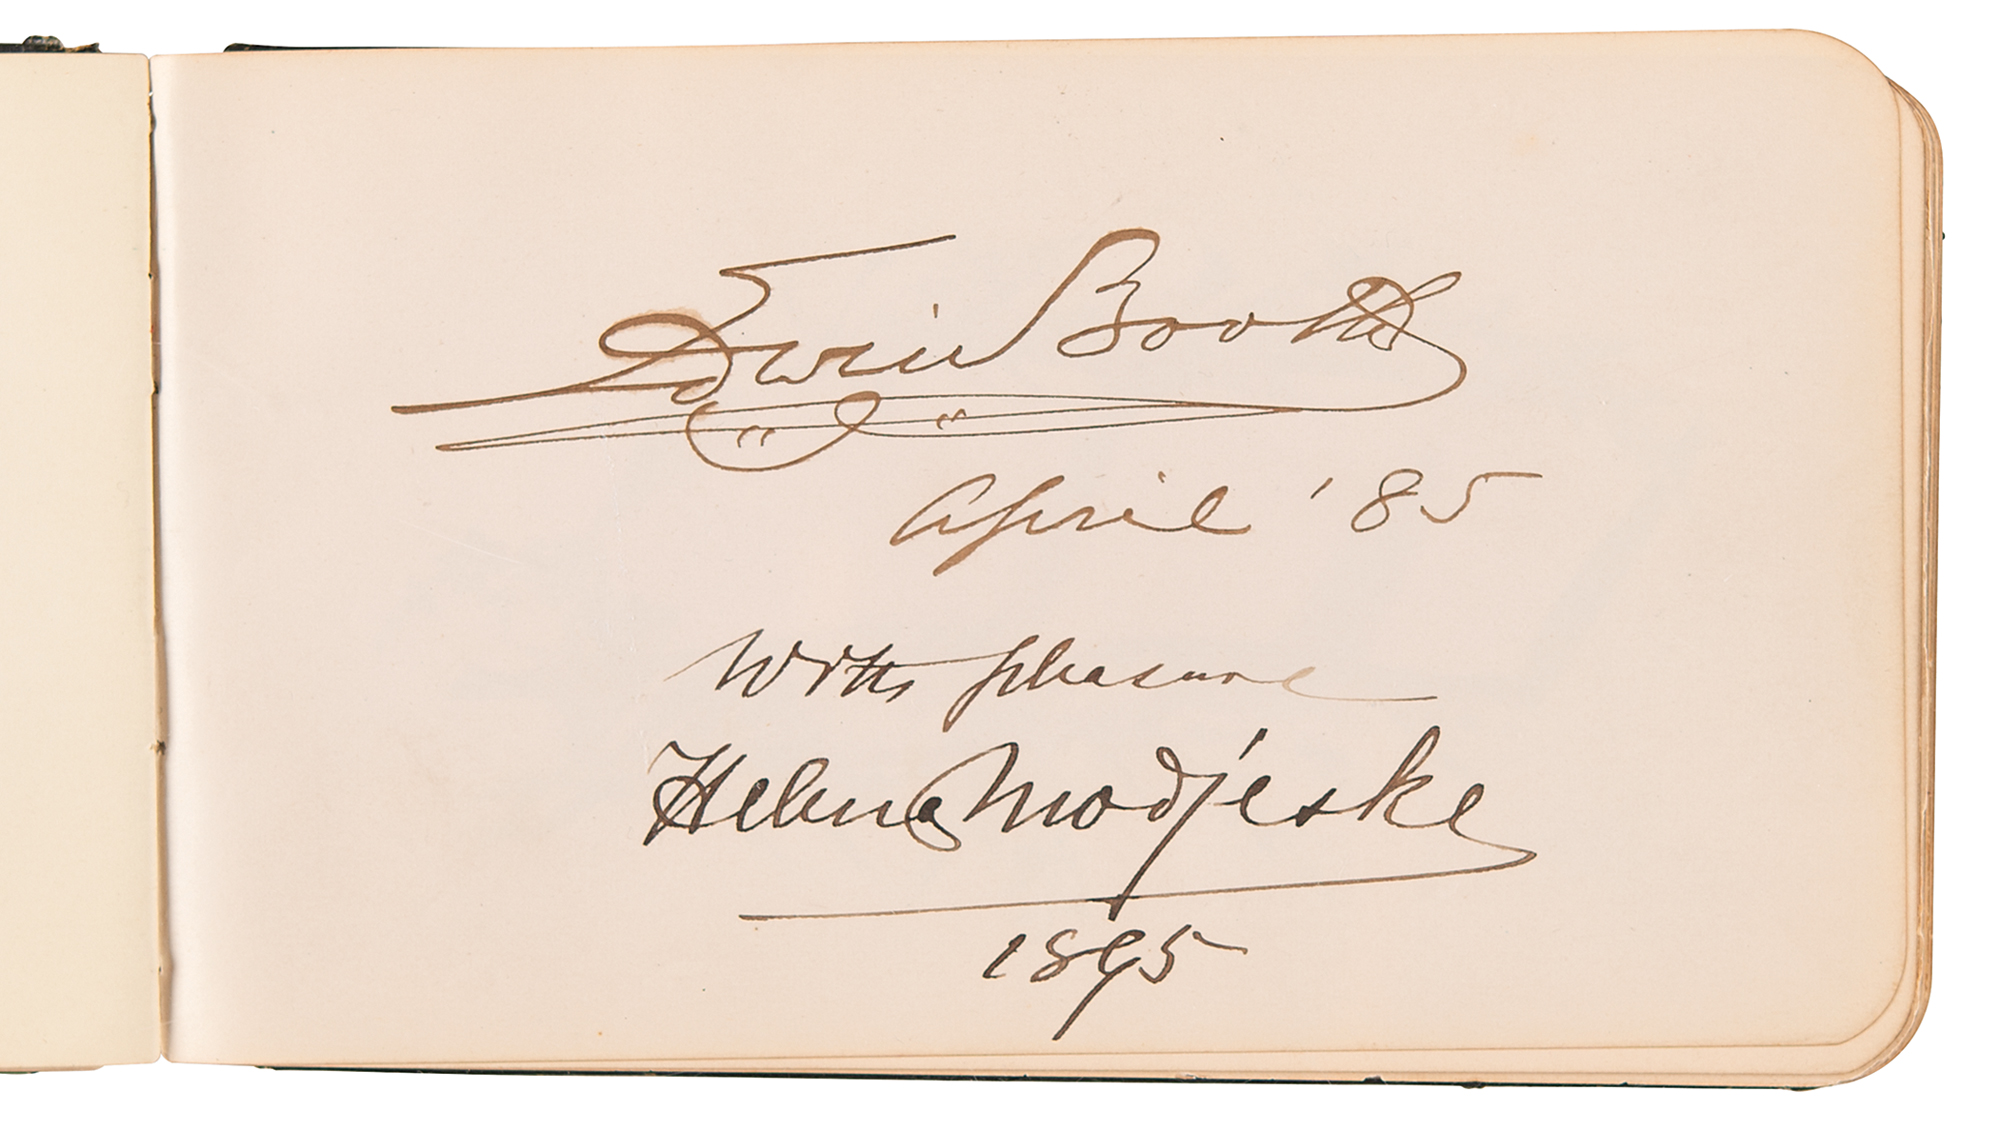 Edwin Booth
April '85
With pleasure
Helena Modjeska
1895